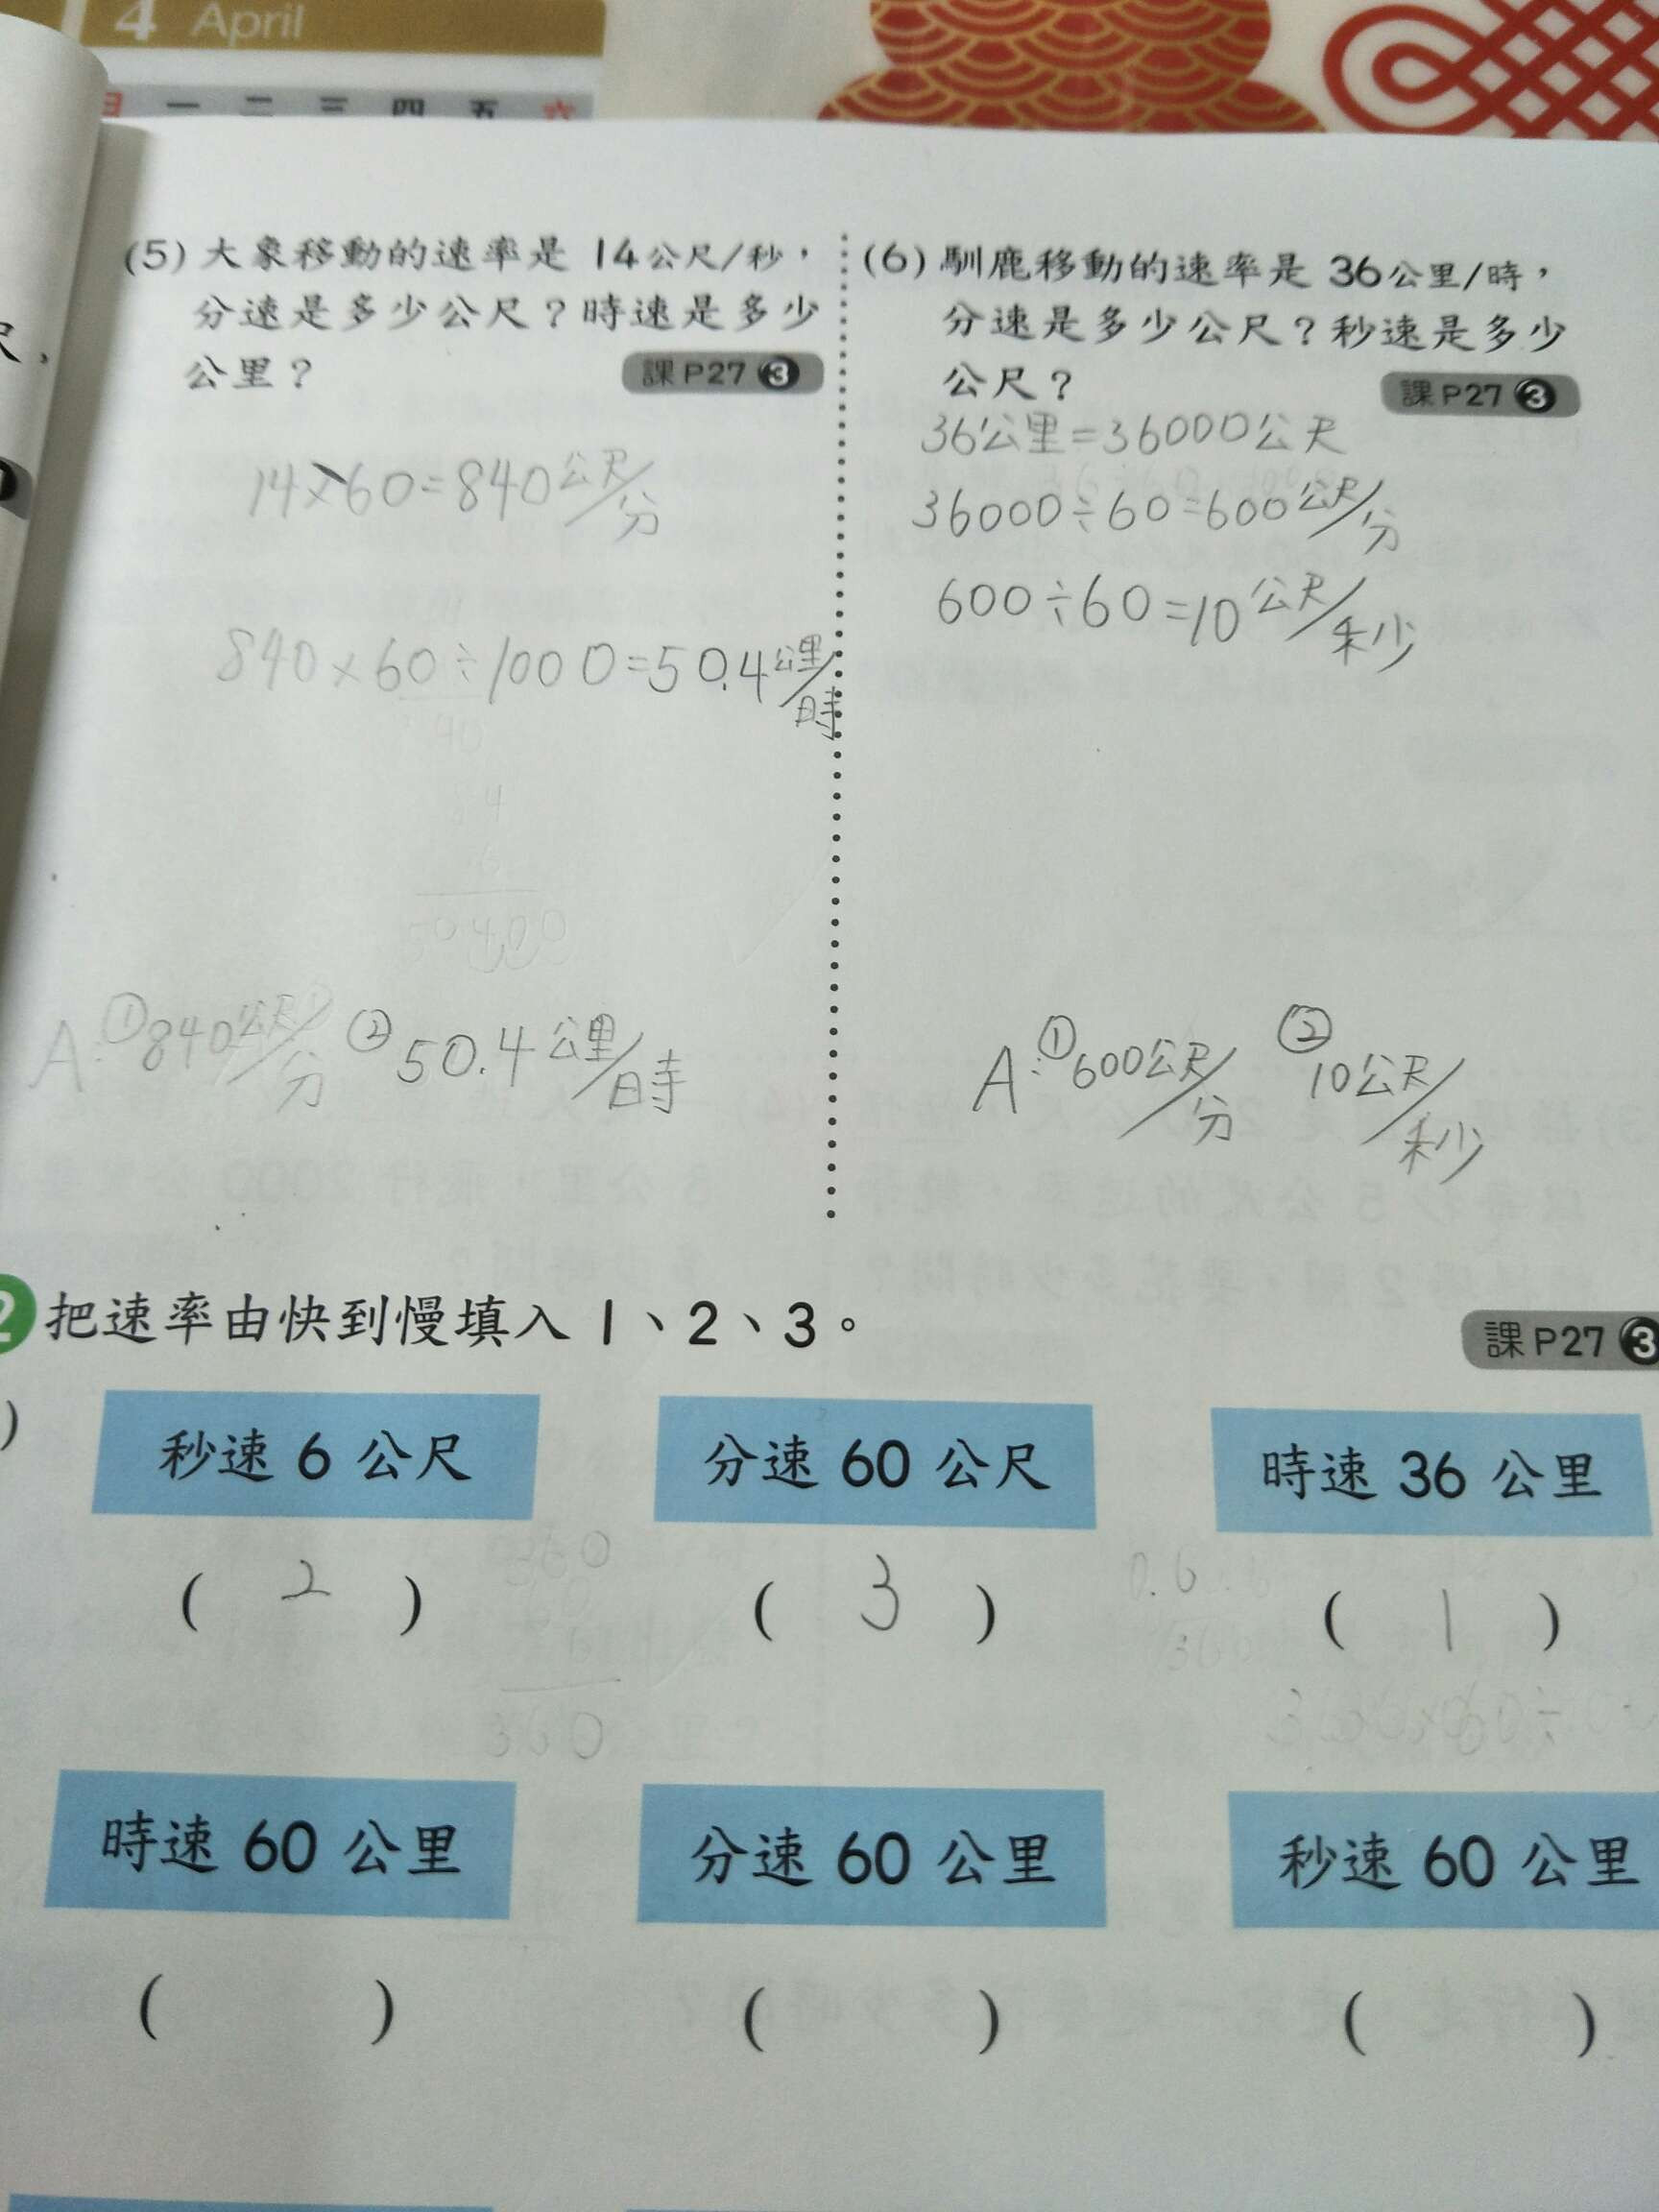 4 April
日 一 二 三 四 五 六
(5) 大象移動的速率是 14公尺/秒，
分速是多少公尺？時速是多少
公里？
課P27 3
14×60=840公尺/分
840×60÷1000=50.4公里/時
50400
A:①840公尺/分 ②50.4公里/時
(6) 馴鹿移動的速率是 36公里/時，
分速是多少公尺？秒速是多少
公尺？
課P27 3
36公里=36000公尺
36000÷60=600公尺/分
600÷60=10公尺/秒
A:①600公尺/分 ②10公尺/秒
2 把速率由快到慢填入 1、2、3。
課P27 3
)
秒速 6 公尺 分速 60 公尺 時速 36 公里
( 2 ) ( 3 ) ( 1 )
360
時速 60 公里 分速 60 公里 秒速 60 公里
( ) ( ) ( )